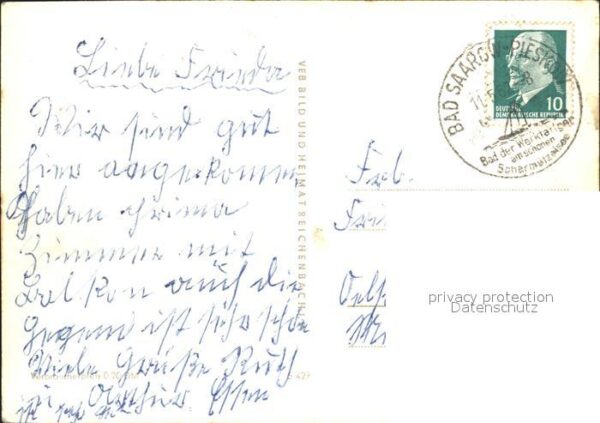 Liebe Frieda
Wir sind gut
hier angekommen
haben prima
Zimmer mit
Balkon auch die
Gegend ist sehr schön
Viele Grüße Ruth
u. Arthur Essen
ist sehr gut
VEB BILD UND HEIMAT REICHENBACH
DEUTSCHE
DEMOKRATISCHE REPUBLIK
10
BAD SAAROW-PIESKOW
Bad der Werktätigen
am schönen
Scharmützelsee
Frb.
Frie
Oels
privacy protection
Datenschutz